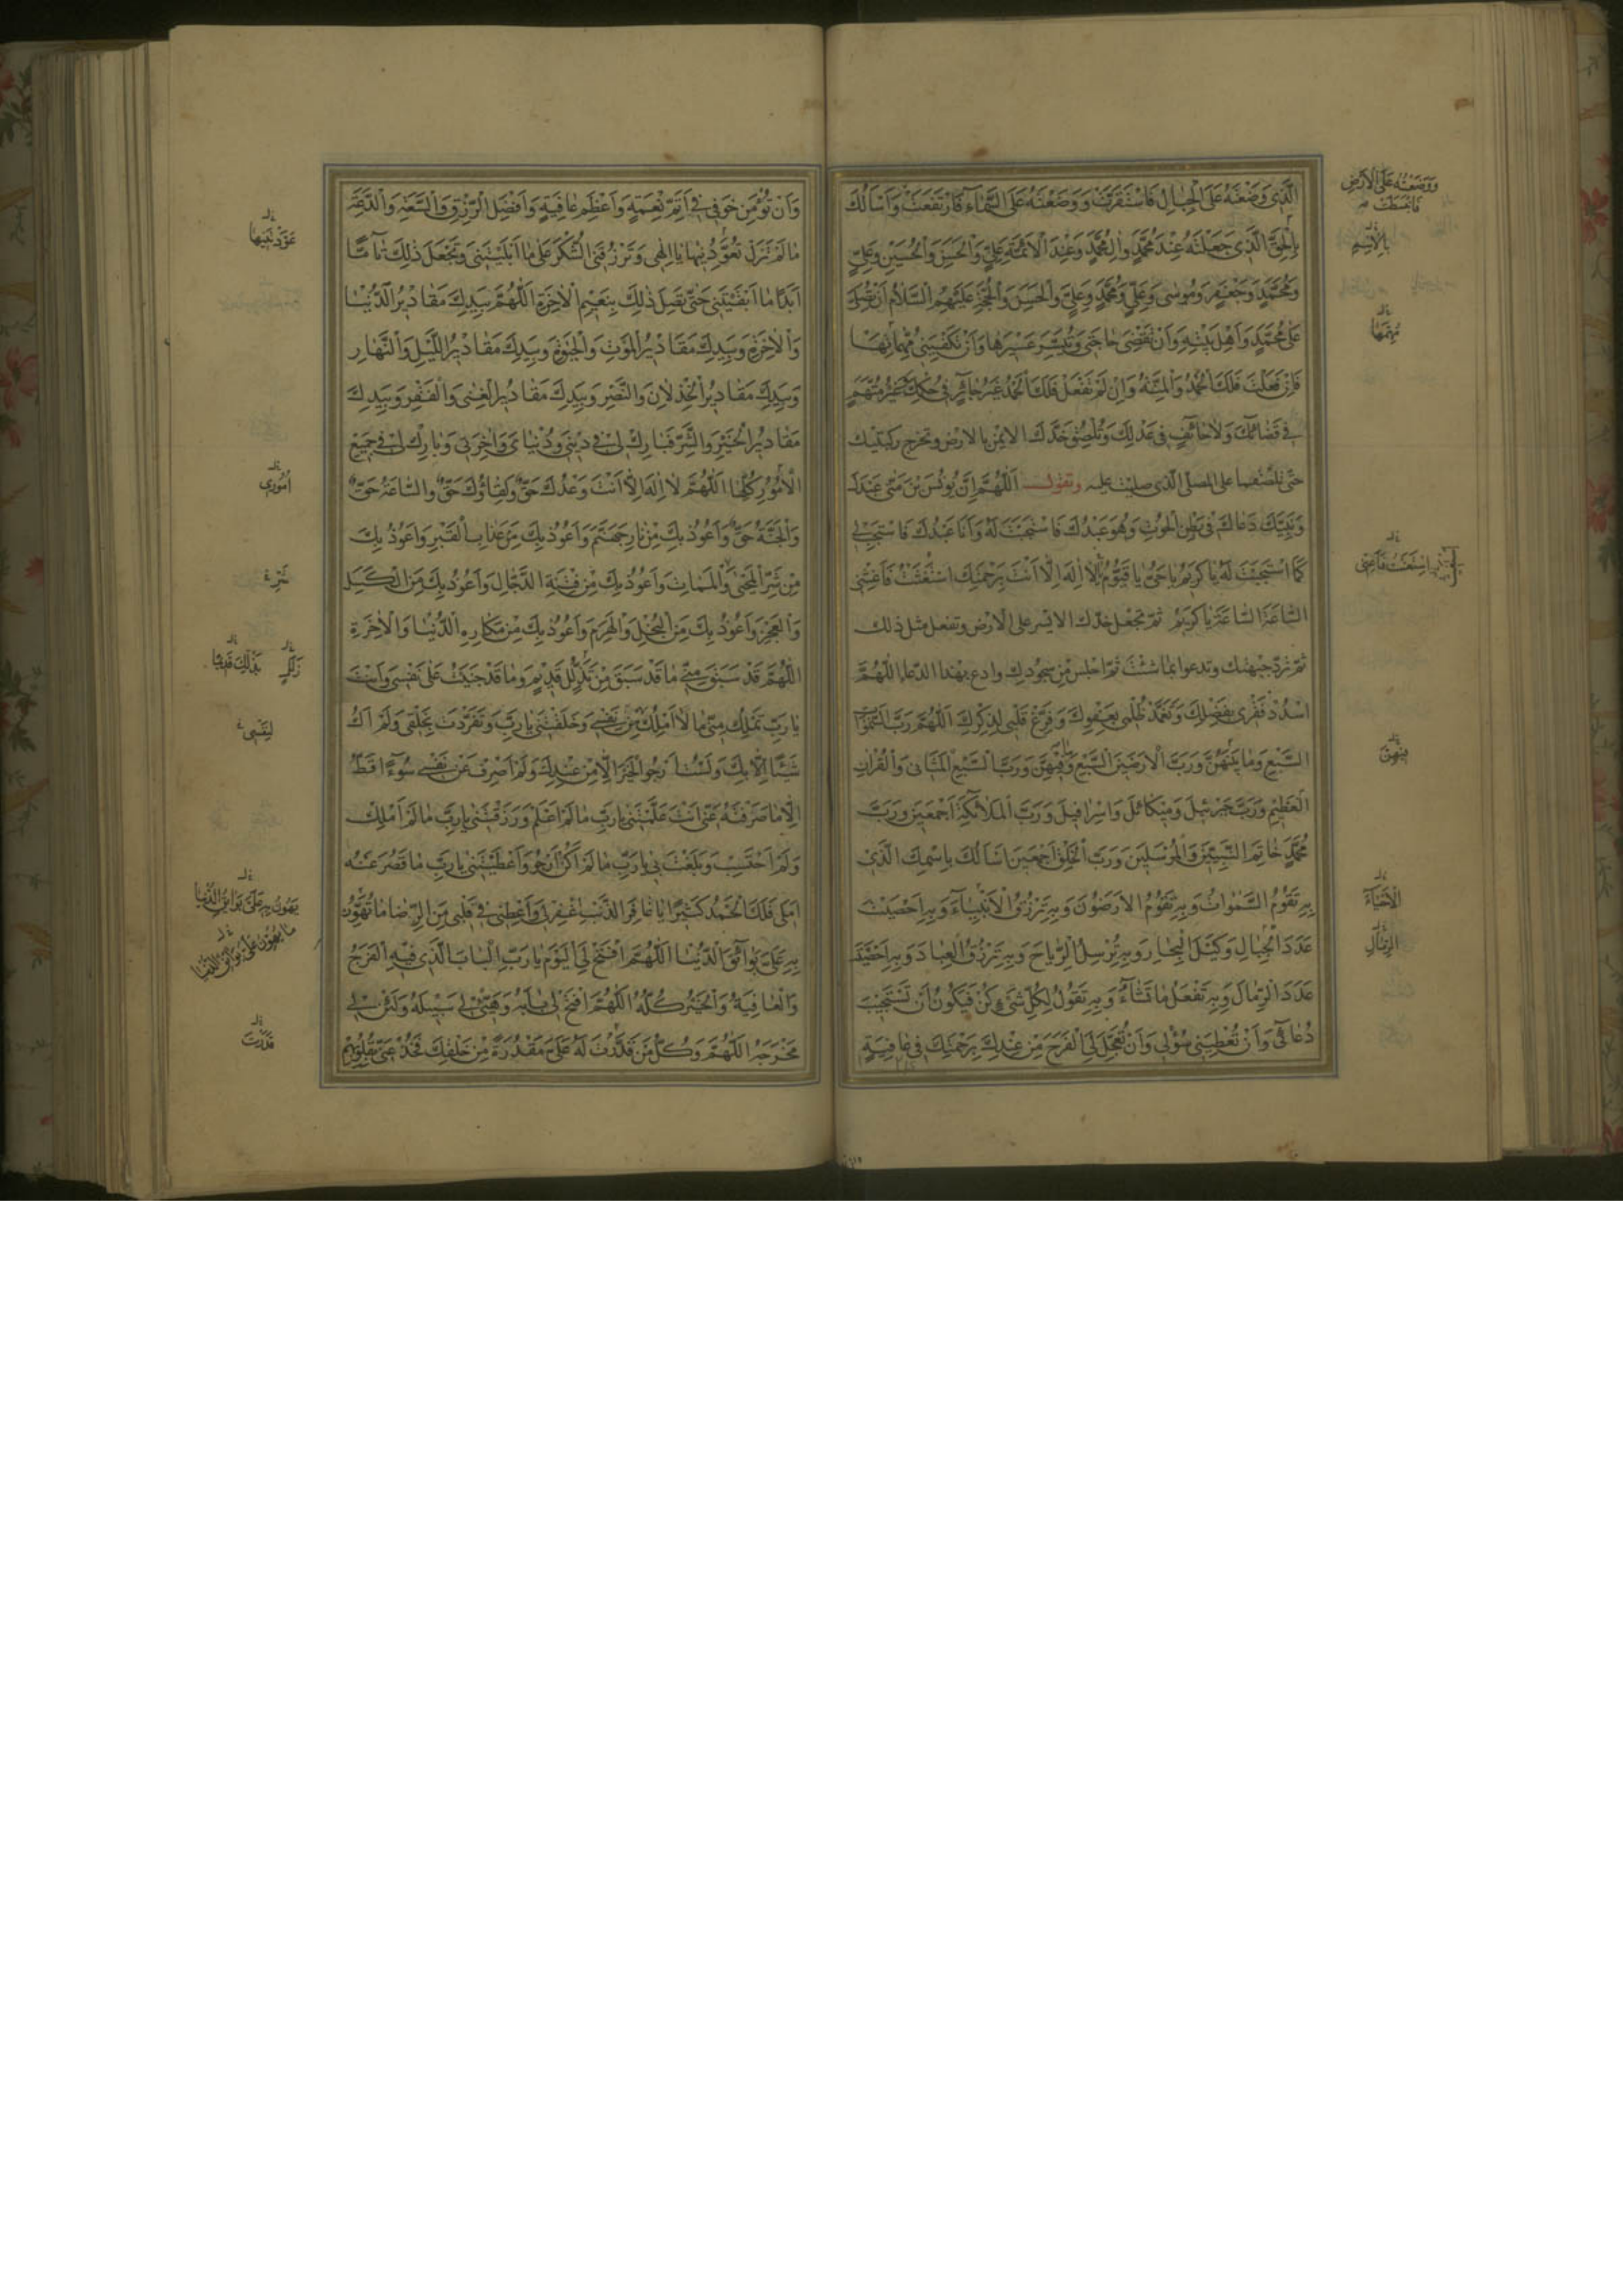 الَّذِي وَضَعْتَهُ عَلَى الْجِبَالِ فَاسْتَقَرَّتْ وَوَضَعْتَهُ عَلَى السَّمَاءِ فَارْتَفَعَتْ وَأَسْأَلُكَ
بِالْحَقِّ الَّذِي جَعَلْتَهُ عِنْدَ مُحَمَّدٍ وَآلِ مُحَمَّدٍ وَعِنْدَ الْأَئِمَّةِ عَلِيٍّ وَالْحَسَنِ وَالْحُسَيْنِ وَعَلِيٍّ
وَمُحَمَّدٍ وَجَعْفَرٍ وَمُوسَى وَعَلِيٍّ وَمُحَمَّدٍ وَعَلِيٍّ وَالْحَسَنِ وَالْحُجَّةِ عَلَيْهِمُ السَّلَامُ أَنْ تُصَلِّيَ
عَلَى مُحَمَّدٍ وَأَهْلِ بَيْتِهِ وَأَنْ تَقْضِيَ حَاجَتِي وَتُيَسِّرَ عَسِيرَهَا وَأَنْ تَكْفِيَنِي مُهِمَّاتِهَا
فَإِنْ فَعَلْتَ فَلَكَ الْحَمْدُ وَالْمِنَّةُ وَإِنْ لَمْ تَفْعَلْ فَلَكَ الْحَمْدُ غَيْرُ جَائِرٍ فِي حُكْمِكَ غَيْرُ مُتَّهَمٍ
فِي قَضَائِكَ وَلَا حَائِفٍ فِي عَدْلِكَ وَتُلْصِقُ خَدَّكَ الْأَيْمَنَ بِالْأَرْضِ وَتُخْرِجُ رُكْبَتَيْكَ
حَتَّى تُلْصِقَهُمَا عَلَى الْمُصَلَّى الَّذِي صَلَّيْتَ عَلَيْهِ وَتَقُولُ اللَّهُمَّ إِنَّ يُونُسَ بْنَ مَتَّى عَبْدَكَ
وَنَبِيَّكَ دَعَاكَ فِي بَطْنِ الْحُوتِ وَهُوَ عَبْدُكَ فَاسْتَجَبْتَ لَهُ وَأَنَا عَبْدُكَ فَاسْتَجِبْ لِي
كَمَا اسْتَجَبْتَ لَهُ يَا كَرِيمُ يَا حَيُّ يَا قَيُّومُ لَا إِلَهَ إِلَّا أَنْتَ بِرَحْمَتِكَ اسْتَغَثْتُ فَأَغِثْنِي
السَّاعَةَ السَّاعَةَ يَا كَرِيمُ ثُمَّ تَجْعَلُ خَدَّكَ الْأَيْسَرَ عَلَى الْأَرْضِ وَتَفْعَلُ مِثْلَ ذَلِكَ
ثُمَّ تَرُدُّ جَبْهَتَكَ وَتَدْعُو بِمَا شِئْتَ ثُمَّ اجْلِسْ مِنْ سُجُودِكَ وَادْعُ بِهَذَا الدُّعَاءِ اللَّهُمَّ
اسْدُدْ فَقْرِي بِفَضْلِكَ وَتَغَمَّدْ ظُلْمِي بِعَفْوِكَ وَفَرِّغْ قَلْبِي لِذِكْرِكَ اللَّهُمَّ رَبَّ السَّمَوَاتِ
السَّبْعِ وَمَا بَيْنَهُنَّ وَرَبَّ الْأَرَضِينَ السَّبْعِ وَمَا فِيهِنَّ وَرَبَّ السَّبْعِ الْمَثَانِي وَالْقُرْآنِ
الْعَظِيمِ وَرَبَّ جَبْرَئِيلَ وَمِيكَائِيلَ وَإِسْرَافِيلَ وَرَبَّ الْمَلَائِكَةِ أَجْمَعِينَ وَرَبَّ
مُحَمَّدٍ خَاتَمِ النَّبِيِّينَ وَالْمُرْسَلِينَ وَرَبَّ الْخَلْقِ أَجْمَعِينَ أَسْأَلُكَ بِاسْمِكَ الَّذِي
بِهِ تَقُومُ السَّمَوَاتُ وَبِهِ تَقُومُ الْأَرَضُونَ وَبِهِ تَرْزُقُ الْأَنْبِيَاءَ وَبِهِ أَحْصَيْتَ
عَدَدَ الْجِبَالِ وَكَيْلَ الْبِحَارِ وَبِهِ تُرْسِلُ الرِّيَاحَ وَبِهِ تَرْزُقُ الْعِبَادَ وَبِهِ أَحْصَيْتَ
عَدَدَ الرِّمَالِ وَبِهِ تَفْعَلُ مَا تَشَاءُ وَبِهِ تَقُولُ لِكُلِّ شَيْءٍ كُنْ فَيَكُونُ أَنْ تَسْتَجِيبَ
دُعَائِي وَأَنْ تُعْطِيَنِي سُؤْلِي وَأَنْ تُعَجِّلَ لِي الْفَرَجَ مِنْ عِنْدِكَ بِرَحْمَتِكَ فِي عَافِيَةٍ
وَوَضَعْتَهُ عَلَى الْأَرْضِ
فَانْبَسَطَتْ
بِالْاِسْمِ
مُهِمَّهَا
اسْتَغَثْتُ فَأَغِثْنِي
فِيهِنَّ
الْأَحْيَاءَ
الرِّمَالِ
وَأَنْ تُؤْمِنَ خَوْفِي فِي أَتَمِّ نِعْمَةٍ وَأَعْظَمِ عَافِيَةٍ وَأَفْضَلِ الرِّزْقِ وَالسَّعَةِ وَالدَّعَةِ
مَا لَمْ تَزَلْ تُعَوِّدُنِيهَا يَا إِلَهِي وَتَرْزُقَنِي الشُّكْرَ عَلَى مَا أَبْلَيْتَنِي وَتَجْعَلَ ذَلِكَ تَامًّا
أَبَدًا مَا أَبْقَيْتَنِي حَتَّى تَصِلَ ذَلِكَ بِنَعِيمِ الْآخِرَةِ اللَّهُمَّ بِيَدِكَ مَقَادِيرُ الدُّنْيَا
وَالْآخِرَةِ وَبِيَدِكَ مَقَادِيرُ الْمَوْتِ وَالْحَيَوةِ وَبِيَدِكَ مَقَادِيرُ اللَّيْلِ وَالنَّهَارِ
وَبِيَدِكَ مَقَادِيرُ الْخِذْلَانِ وَالنَّصْرِ وَبِيَدِكَ مَقَادِيرُ الْغِنَى وَالْفَقْرِ وَبِيَدِكَ
مَقَادِيرُ الْخَيْرِ وَالشَّرِّ فَبَارِكْ لِي فِي دِينِي وَدُنْيَايَ وَآخِرَتِي وَبَارِكْ لِي فِي جَمِيعِ
الْأُمُورِ كُلِّهَا اللَّهُمَّ لَا إِلَهَ إِلَّا أَنْتَ وَعْدُكَ حَقٌّ وَلِقَاؤُكَ حَقٌّ وَالسَّاعَةُ حَقٌّ
وَالْجَنَّةُ حَقٌّ وَأَعُوذُ بِكَ مِنْ نَارِ جَهَنَّمَ وَأَعُوذُ بِكَ مِنْ عَذَابِ الْقَبْرِ وَأَعُوذُ بِكَ
مِنْ شَرِّ الْمَحْيَى وَالْمَمَاتِ وَأَعُوذُ بِكَ مِنْ فِتْنَةِ الدَّجَّالِ وَأَعُوذُ بِكَ مِنَ الْكَسَلِ
وَالْعَجْزِ وَأَعُوذُ بِكَ مِنَ الْبُخْلِ وَالْهَرَمِ وَأَعُوذُ بِكَ مِنْ مَكَارِهِ الدُّنْيَا وَالْآخِرَةِ
اللَّهُمَّ قَدْ سَبَقَ مِنِّي مَا قَدْ سَبَقَ مِنْ زَلَلٍ قَدِيمٍ وَمَا قَدْ جَنَيْتُ عَلَى نَفْسِي وَأَنْتَ
يَا رَبِّ تَمْلِكُ مِنِّي مَا لَا أَمْلِكُ مِنْ نَفْسِي وَخَلَقْتَنِي يَا رَبِّ وَتَفَرَّدْتَ بِخَلْقِي وَلَمْ أَكُ
شَيْئًا إِلَّا بِكَ وَلَسْتُ أَرْجُو الْخَيْرَ إِلَّا مِنْ عِنْدِكَ وَلَمْ أَصْرِفْ عَنْ نَفْسِي سُوءًا قَطُّ
إِلَّا مَا صَرَفْتَهُ عَنِّي أَنْتَ عَلَّمْتَنِي يَا رَبِّ مَا لَمْ أَعْلَمْ وَرَزَقْتَنِي يَا رَبِّ مَا لَمْ أَمْلِكْ
وَلَمْ أَحْتَسِبْ وَبَلَغْتَ بِي يَا رَبِّ مَا لَمْ أَكُنْ أَرْجُو وَأَعْطَيْتَنِي يَا رَبِّ مَا قَصُرَ عَنْهُ
أَمَلِي فَلَكَ الْحَمْدُ كَثِيرًا يَا غَافِرَ الذَّنْبِ اغْفِرْ لِي وَأَعْطِنِي فِي قَلْبِي مِنَ الرِّضَا مَا تُهَوِّنُ
بِهِ عَلَيَّ بَوَائِقَ الدُّنْيَا اللَّهُمَّ افْتَحْ لِيَ الْيَوْمَ يَا رَبِّ الْبَابَ الَّذِي فِيهِ الْفَرَجُ
وَالْعَافِيَةُ وَالْخَيْرُ كُلُّهُ اللَّهُمَّ افْتَحْ لِي بَابَهُ وَهَيِّئْ لِي سَبِيلَهُ وَلَيِّنْ لِي
مَخْرَجَهُ اللَّهُمَّ وَكُلُّ مَنْ قَدَّرْتَ لَهُ عَلَيَّ مَقْدُرَةً مِنْ خَلْقِكَ فَخُذْ عَنِّي بِقُلُوبِهِمْ
أُمُورِي
زَلَلٍ
لِنَفْسِي
قَدَّرْتَ